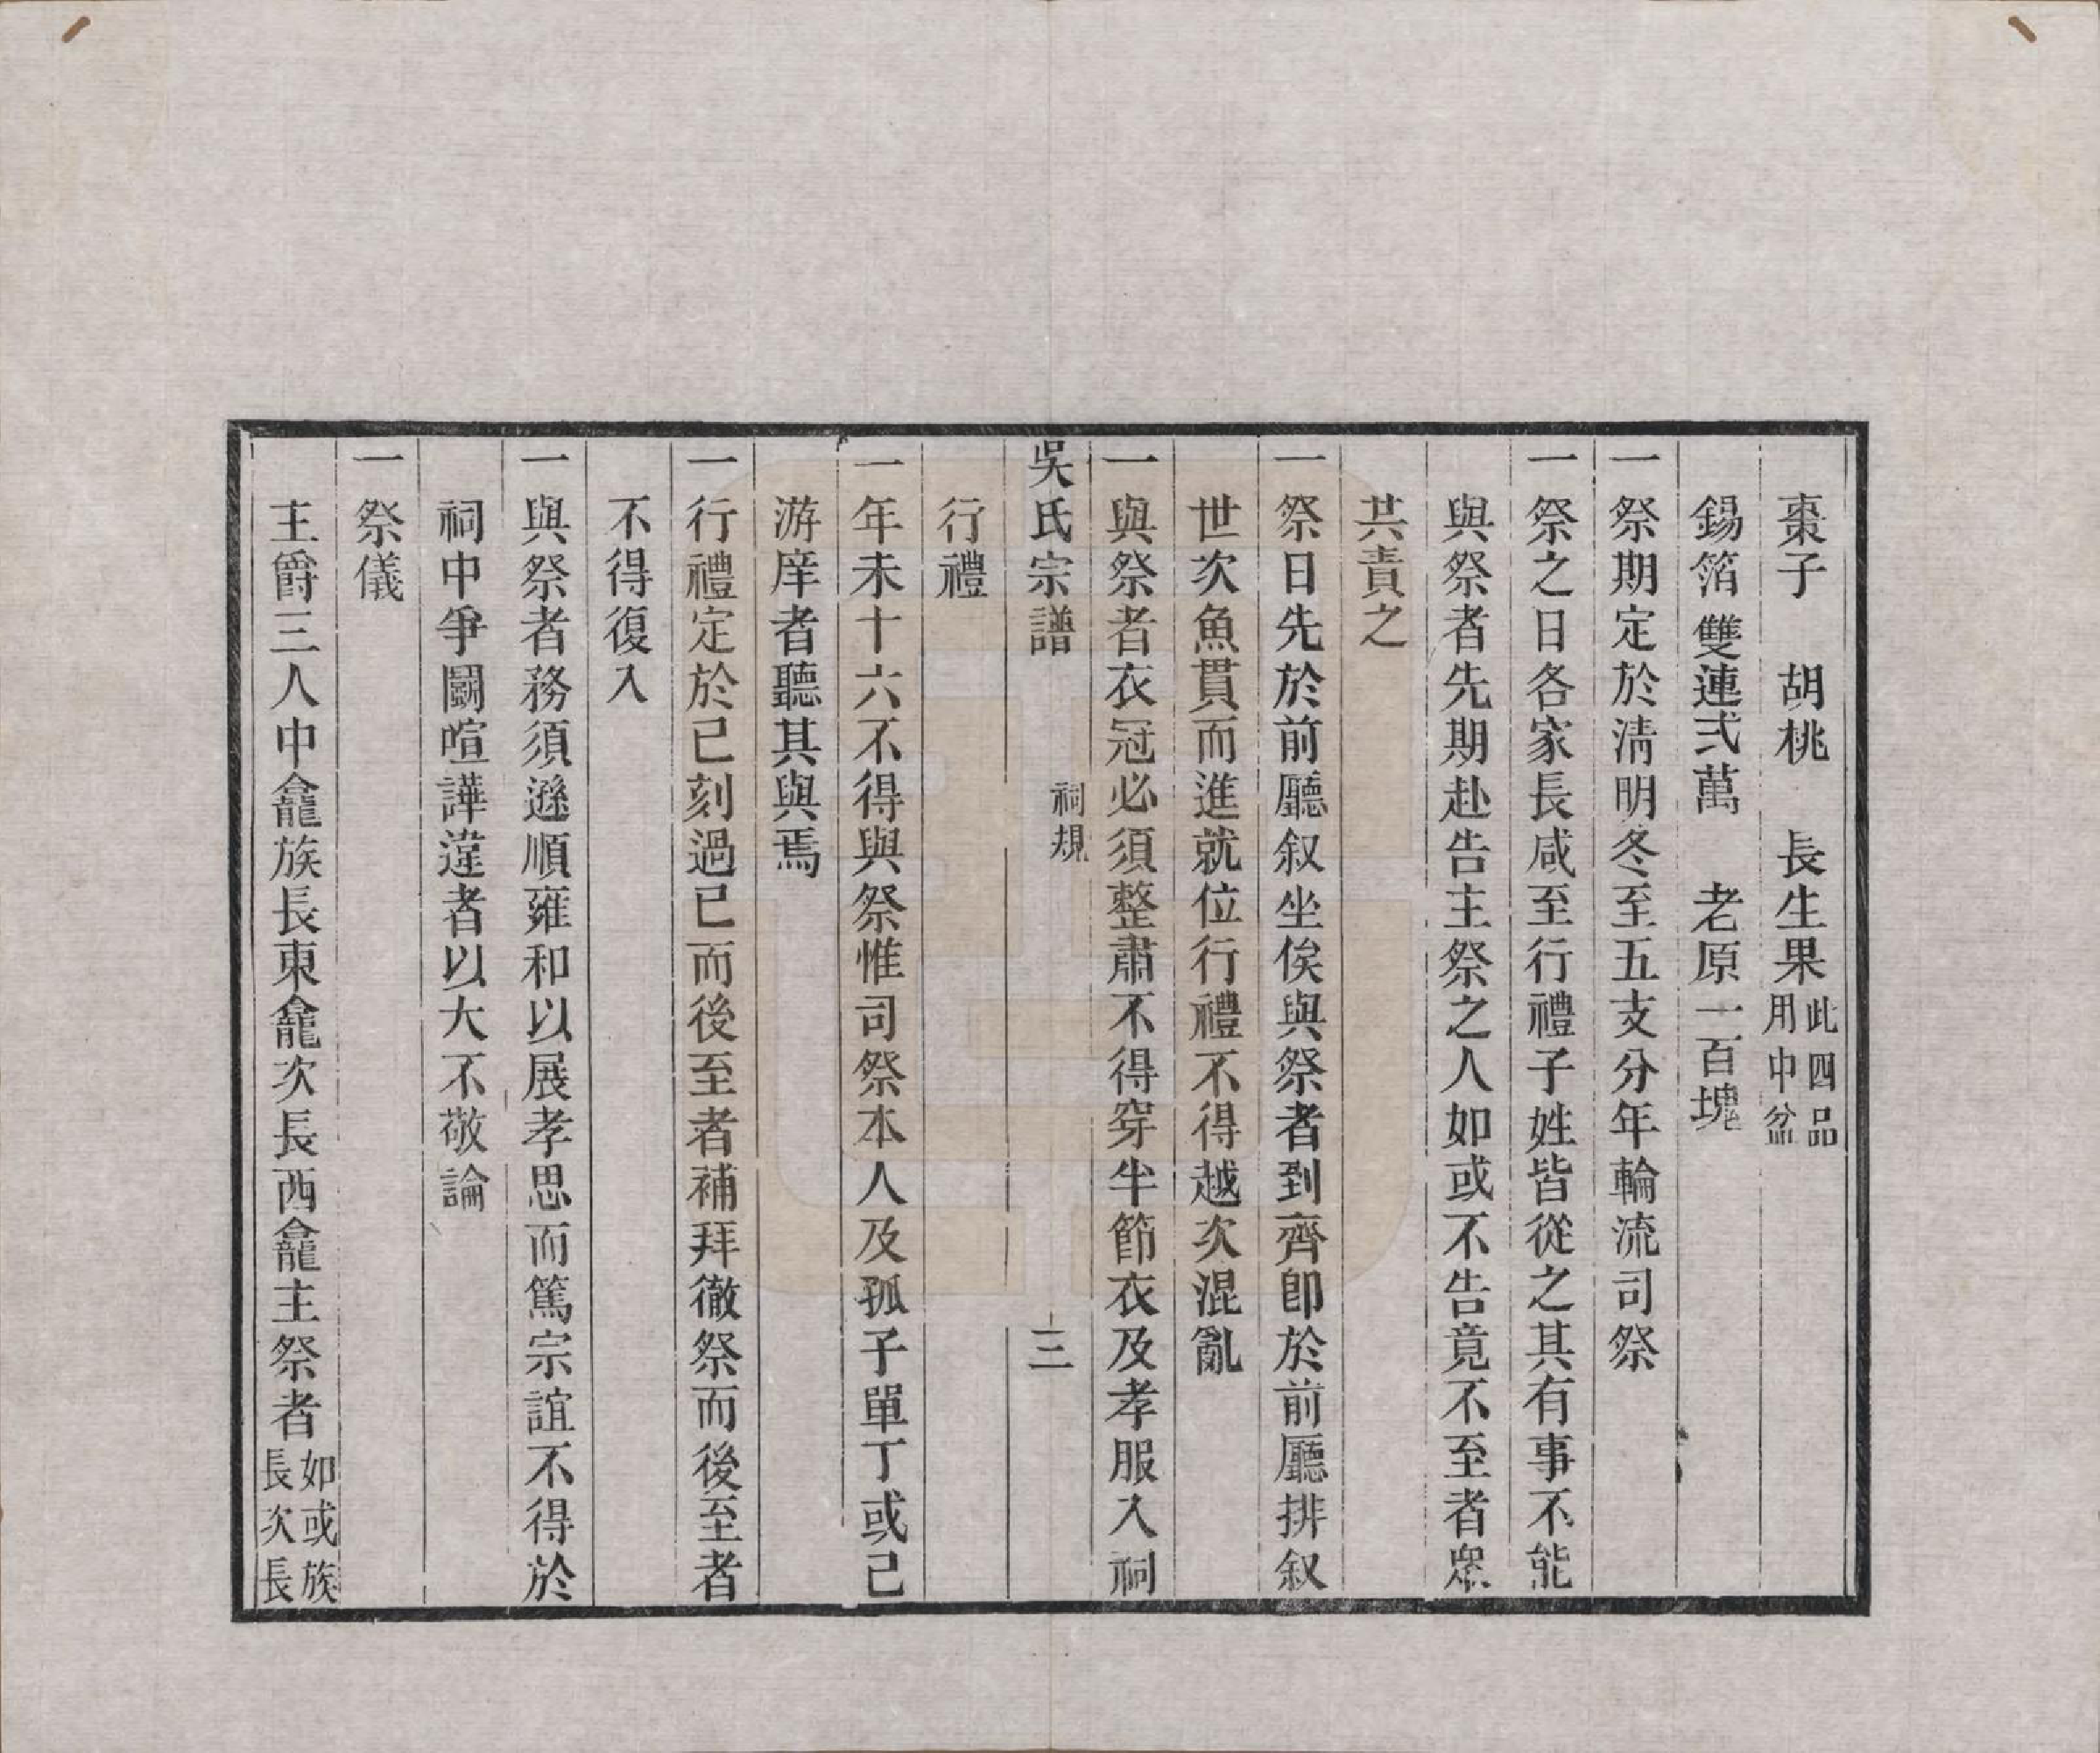 棗子　胡桃　長生果此四品用中盆
錫箔雙連弍萬　老原一百塊
一祭期定於淸明冬至五支分年輪流司祭
一祭之日各家長咸至行禮子姓皆從之其有事不能
與祭者先期赴告主祭之人如或不告竟不至者眾
共責之
一祭日先於前廳叙坐俟與祭者到齊卽於前廳排叙
世次魚貫而進就位行禮不得越次混亂
一與祭者衣冠必須整肅不得穿半節衣及孝服入祠
吳氏宗譜　祠規　三
行禮
一年未十六不得與祭惟司祭本人及孤子單丁或已
游庠者聽其與焉
一行禮定於巳刻過巳而後至者補拜徹祭而後至者
不得復入
一與祭者務須遜順雍和以展孝思而篤宗誼不得於
祠中爭鬭喧譁違者以大不敬論
一祭儀
主爵三人中龕族長東龕次長西龕主祭者如或族長次長